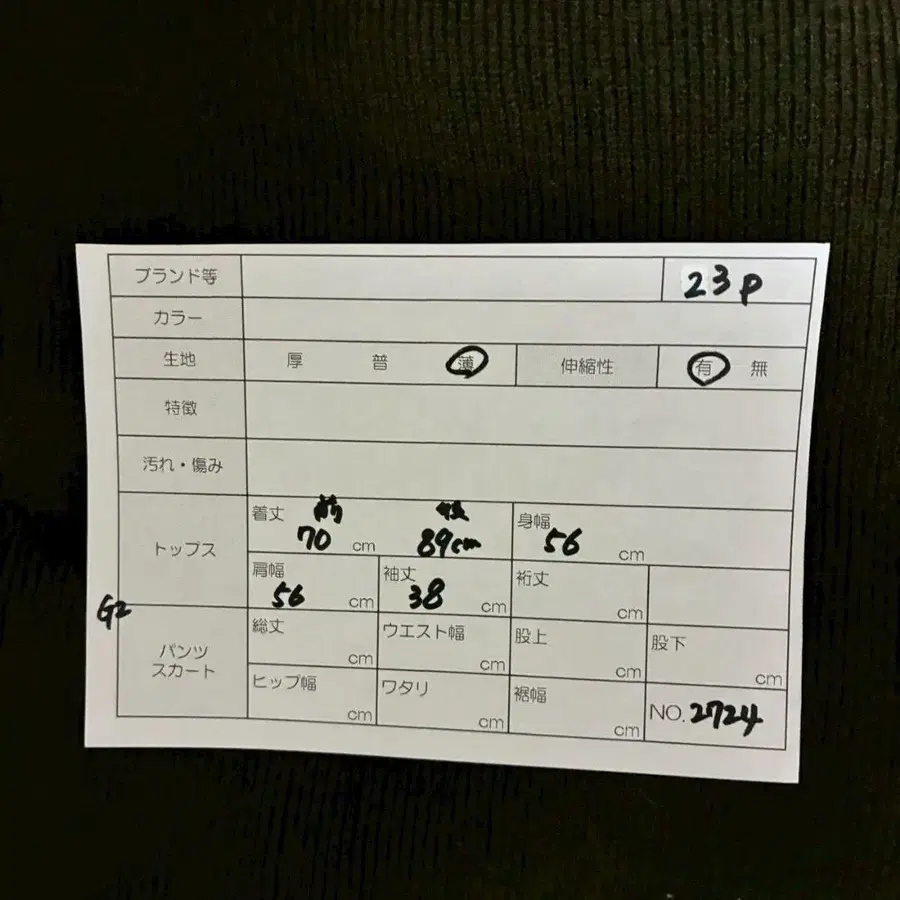 ブランド等 23P
カラー
生地 厚 普 薄 伸縮性 有 無
特徴
汚れ・傷み
トップス
着丈 前 70 cm 後 89cm 身幅 56 cm
肩幅 56 cm 袖丈 38 cm 裄丈 cm
G2
パンツ
スカート
総丈 cm ウエスト幅 cm 股上 cm 股下 cm
ヒップ幅 cm ワタリ cm 裾幅 cm NO.2724